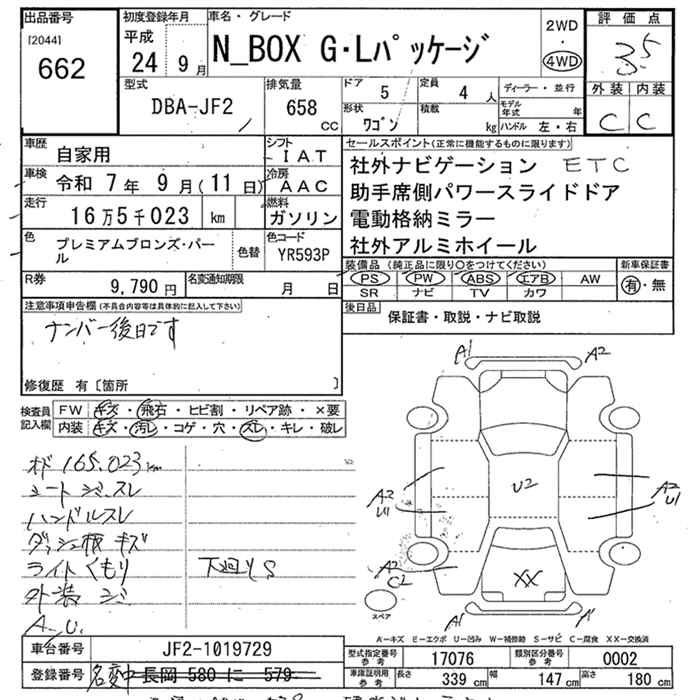 出品番号 初度登録年月 車名・グレード 評価点
[2044] 平成 2WD
662 24 9月 N_BOX G・Lパッケージ ・ 3.5
4WD
型式 排気量 ドア 5 定員 4人 ディーラー・並行 外装 内装
DBA-JF2 658 cc 形状 ワゴン 積載 kg モデル年式 年 C C
ハンドル 左・右
車歴 自家用 シフト IAT セールスポイント(正常に機能するものに限ります)
車検 令和 7年 9月(11日) 冷房 AAC 社外ナビゲーション ETC
走行 16万5千023 km 燃料 ガソリン 助手席側パワースライドドア
電動格納ミラー
色 プレミアムブロンズ・パール 色替 色コード YR593P 社外アルミホイール
R券 9,790円 名変通知期限 月 日 装備品 (純正品に限り○をつけてください) 新車保証書
PS PW ABS エアB AW 有・無
SR ナビ TV カワ
注意事項申告欄(不具合内容等は具体的に記入して下さい) 後日品 保証書・取説・ナビ取説
ナンバー後日です
修復歴 有〔箇所 〕
検査員記入欄 FW キズ・飛石・ヒビ割・リペア跡・×要
内装 キズ・汚レ・コゲ・穴・スレ・キレ・破レ
A1 A2
オド 165,023km
シートシミ、スレ
ハンドルスレ
ダッシュ板キズ
ライトくもり 下廻りS
外装シミ
A、U
U2
A2 U1 A2 U1
A2 C2
XX
A1 A1
スペア
A―キズ E―エクボ U―凹み W―補修跡 S―サビ C―腐食 XX―交換済
車台番号 JF2-1019729 型式指定番号参考 17076 類別区分番号参考 0002
登録番号 名変中 長岡 580 に 579 車庫証明用参考 長さ 339 cm 幅 147 cm 高さ 180 cm